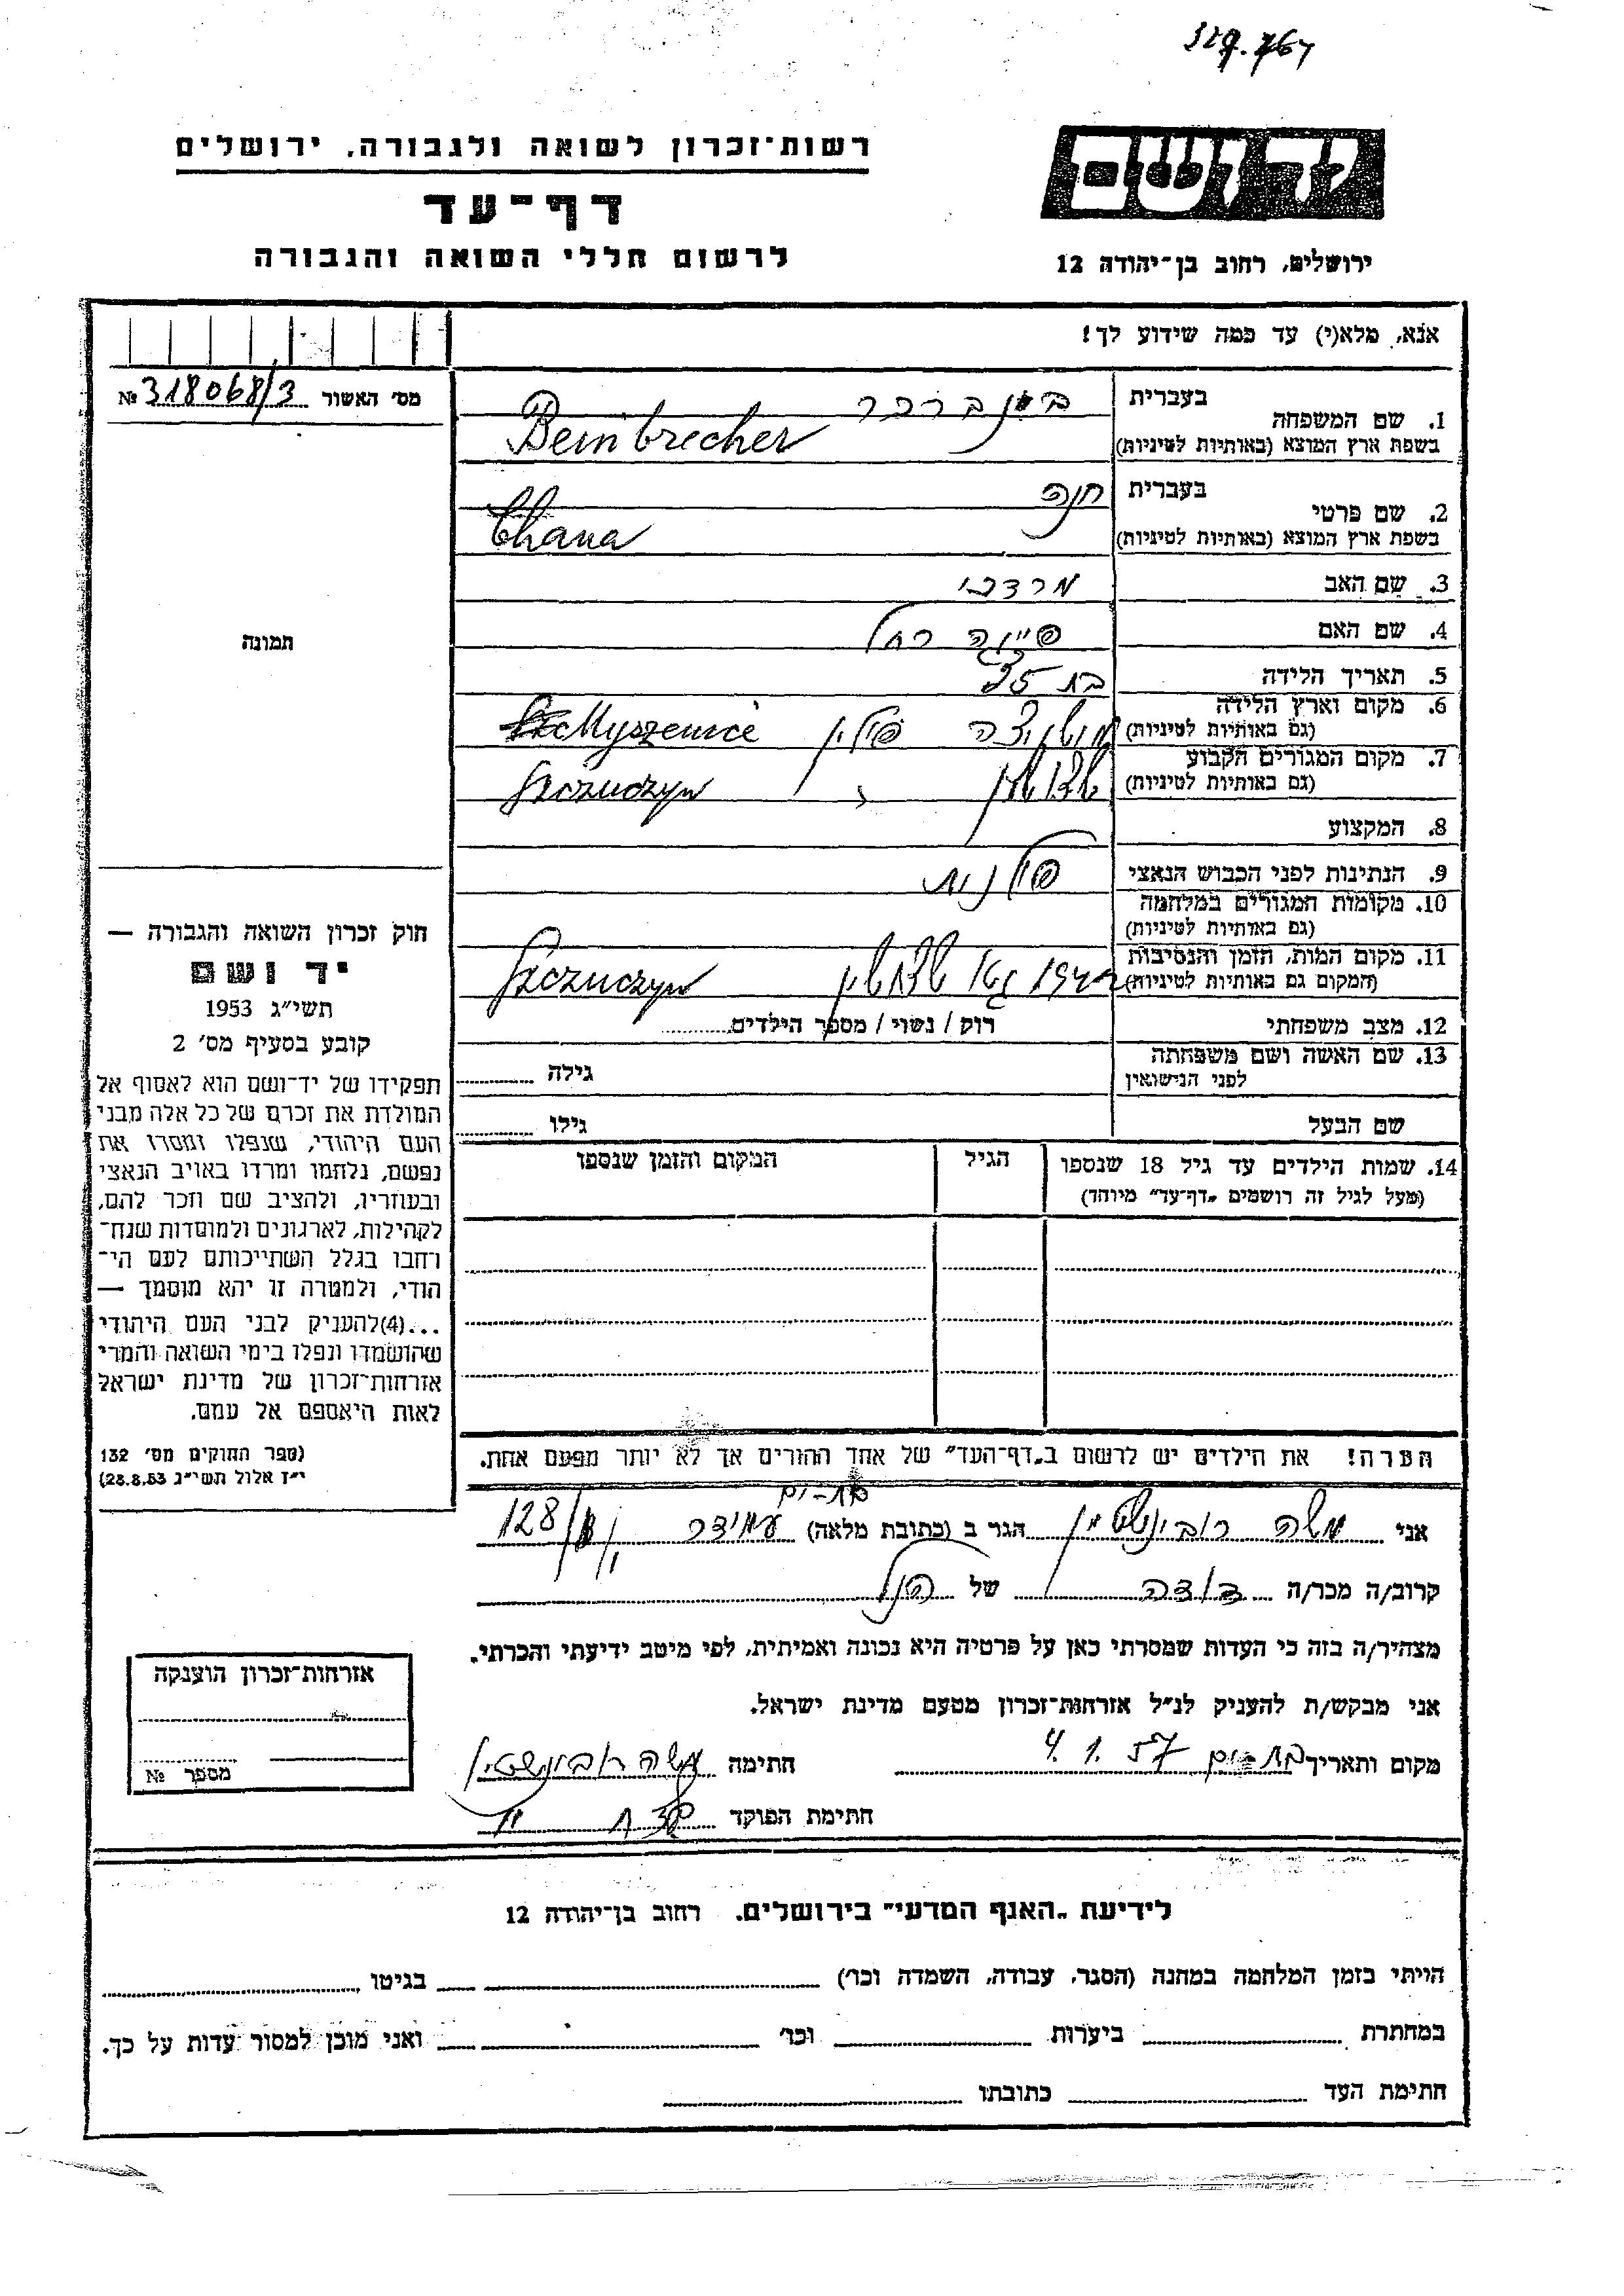 רשות־זכרון לשואה ולגבורה, ירושלים
דף־עד
לרשום חללי השואה והגבורה
יד ושם
ירושלים, רחוב בן־יהודה 12
אנא, מלא(י) עד כמה שידוע לך!
מס' האשור 318068/3 №
תמונה
1. שם המשפחה בעברית ביינברכר
בשפת ארץ המוצא (באותיות לטיניות) Beinbrecher
2. שם פרטי בעברית חנה
בשפת ארץ המוצא (באותיות לטיניות) Chana
3. שם האב מרדכי
4. שם האם רחל
5. תאריך הלידה בת 35
6. מקום וארץ הלידה פולין Myszenice
(גם באותיות לטיניות)
7. מקום המגורים הקבוע Szczuczyn
(גם באותיות לטיניות)
8. המקצוע
9. הנתינות לפני הכבוש הנאצי פולנית
10. מקומות המגורים במלחמה
(גם באותיות לטיניות)
11. מקום המות, הזמן והנסיבות גטו Szczuczyn
(המקום גם באותיות לטיניות)
12. מצב משפחתי רוק / נשוי / מספר הילדים
13. שם האשה ושם משפחתה גילה
לפני הנישואין
שם הבעל גילו
14. שמות הילדים עד גיל 18 שנספו הגיל המקום והזמן שנספו
(מעל לגיל זה רושמים "דף־עד" מיוחד)
הערה! את הילדים יש לרשום ב"דף־העד" של אחד ההורים אך לא יותר מפעם אחת.
חוק זכרון השואה והגבורה —
יד ושם
תשי"ג 1953
קובע בסעיף מס' 2
תפקידו של יד־ושם הוא לאסוף אל
המולדת את זכרם של כל אלה מבני
העם היהודי, שנפלו ומסרו את
נפשם, נלחמו ומרדו באויב הנאצי
ובעוזריו, ולהציב שם וזכר להם,
לקהילות, לארגונים ולמוסדות שנח־
רחבו בגלל השתייכותם לעם הי־
הודי, ולמטרה זו יהא מוסמך —
...(4)להעניק לבני העם היהודי
שהושמדו ונפלו בימי השואה והמרי
אזרחות־זכרון של מדינת ישראל
לאות היאספם אל עמם.
(ספר החוקים מס' 132
י"ז אלול תשי"ג 28.8.53)
בת-ים
אני משה רובינשטיין הגר ב (כתובת מלאה) עמידר 128/
קרוב/ה מכר/ה דודה של הנ"ל
מצהיר/ה בזה כי העדות שמסרתי כאן על פרטיה היא נכונה ואמיתית, לפי מיטב ידיעתי והכרתי.
אני מבקש/ת להעניק לנ"ל אזרחות־זכרון מטעם מדינת ישראל.
מקום ותאריך בת-ים 4.1.57 חתימה משה רובינשטיין
חתימת הפוקד
אזרחות־זכרון הוענקה
מספר №
לידיעת "האגף המדעי" בירושלים, רחוב בן־יהודה 12
הויתי בזמן המלחמה במחנה (הסגר, עבודה, השמדה וכו') בגיטו
במחתרת ביערות וכו' ואני מוכן למסור עדות על כך.
חתימת העד כתובתו